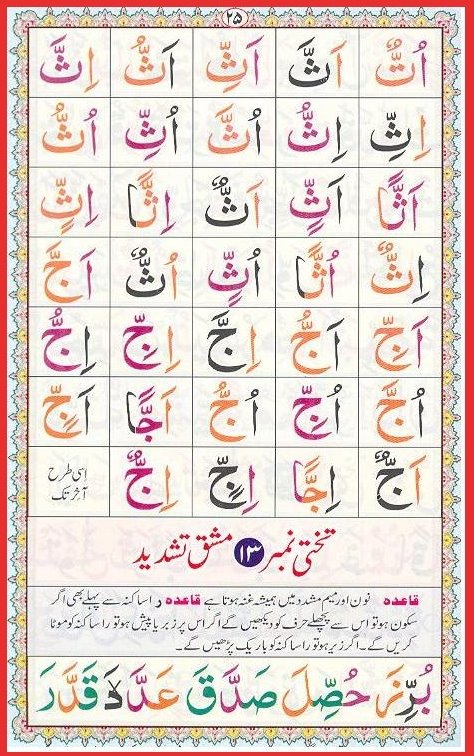 ٢٥
اُتٌّ اَثَّ اَثِّ اَثُّ اِثَّ
اِثِّ اِثُّ اُثَّ اُثِّ اُثُّ
اَثًّا اَثٍّ اَثٌّ اِثًّا اِثٍّ
اِثٌّ اُثًّا اُثٍّ اُثٌّ اَجَّ
اَجِّ اَجُّ اِجَّ اِجِّ اِجُّ
اُجَّ اُجِّ اُجُّ اَجًّا اَجٍّ
اَجٌّ اِجًّا اِجٍّ اِجٌّ اسی طرح
آخر تک
تختی نمبر ۱۳ مشق تشدید
قاعدہ نون اور میم مشدد میں ہمیشہ غنہ ہوتا ہے قاعدہ ر اساکنہ سے پہلے بھی اگر
سکون ہو تو اس سے پچھلے حرف کو دیکھیں گے اگر اس پر زبر یا پیش ہو تو را ساکنہ کو موٹا
کریں گے۔ اگر زیر ہو تو را ساکنہ کو باریک پڑھیں گے۔
بُرِّزَ حُصِّلَ صَدَّقَ قَدَّرَ